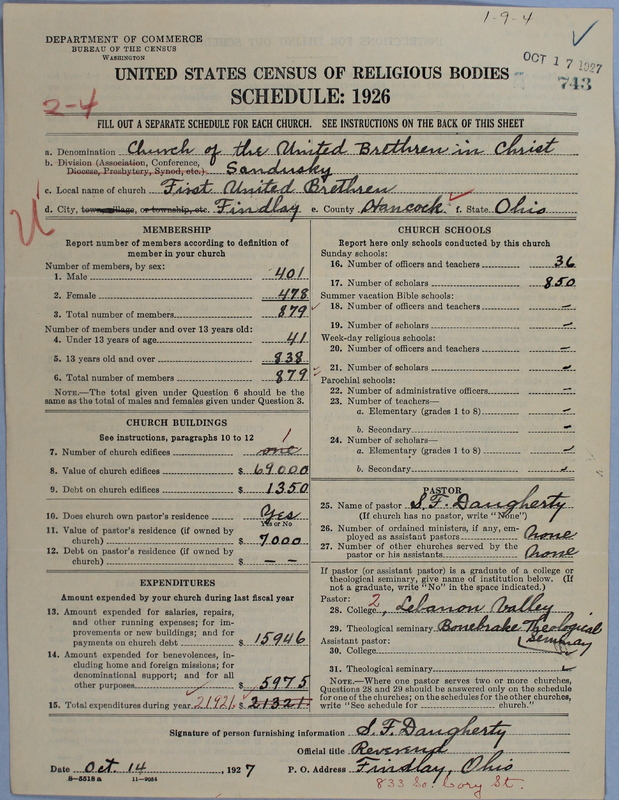 1-9-4
DEPARTMENT OF COMMERCE
BUREAU OF THE CENSUS
WASHINGTON
OCT 17 1927
743
UNITED STATES CENSUS OF RELIGIOUS BODIES
SCHEDULE: 1926
2-4
FILL OUT A SEPARATE SCHEDULE FOR EACH CHURCH. SEE INSTRUCTIONS ON THE BACK OF THIS SHEET
a. Denomination Church of the United Brethren in Christ
b. Division (Association, Conference, Diocese, Presbytery, Synod, etc.) Sandusky
c. Local name of church First United Brethren
d. City, town, village, or township, etc. Findlay e. County Hancock f. State Ohio
MEMBERSHIP
Report number of members according to definition of
member in your church
Number of members, by sex:
1. Male 401
2. Female 478
3. Total number of members 879
Number of members under and over 13 years old:
4. Under 13 years of age 41
5. 13 years old and over 838
6. Total number of members 879
NOTE.—The total given under Question 6 should be
same as the total of males and females given under Question 3.
CHURCH BUILDINGS
See instructions, paragraphs 10 to 12
7. Number of church edifices one 1
8. Value of church edifices $ 69000
9. Debt on church edifices $ 1350
10. Does church own pastor's residence Yes
Yes or No
11. Value of pastor's residence (if owned by
church) $ 7000
12. Debt on pastor's residence (if owned by
church) $ – –
EXPENDITURES
Amount expended by your church during last fiscal year
13. Amount expended for salaries, repairs,
and other running expenses; for im-
provements or new buildings; and for
payments on church debt $ 15946
14. Amount expended for benevolences, in-
cluding home and foreign missions; for
denominational support; and for all
other purposes $ 5975
15. Total expenditures during year 21921 $ 21321
CHURCH SCHOOLS
Report here only schools conducted by this church
Sunday schools:
16. Number of officers and teachers 36
17. Number of scholars 850
Summer vacation Bible schools:
18. Number of officers and teachers –
19. Number of scholars –
Week-day religious schools:
20. Number of officers and teachers –
21. Number of scholars –
Parochial schools:
22. Number of administrative officers –
23. Number of teachers—
a. Elementary (grades 1 to 8) –
b. Secondary –
24. Number of scholars—
a. Elementary (grades 1 to 8)
b. Secondary
PASTOR
25. Name of pastor S. F. Daugherty
(If church has no pastor, write "None")
26. Number of ordained ministers, if any, em-
ployed as assistant pastors none
27. Number of other churches served by the
pastor or his assistants none
If pastor (or assistant pastor) is a graduate of a college or
theological seminary, give name of institution below. (If
not a graduate, write "No" in the space indicated.)
Pastor: 2
28. College, Lebanon Valley
29. Theological seminary Bonebrake Theological
Seminary
Assistant pastor:
30. College
31. Theological seminary
NOTE.—Where one pastor serves two or more churches,
Questions 28 and 29 should be answered only on the schedule
for one of the churches; on the schedules for the other churches,
write "See schedule for church."
Signature of person furnishing information S. F. Daugherty
Official title Reverend
Date Oct. 14, 1927 P. O. Address Findlay, Ohio
8-5518 a 11-9054
833 So. Cory St.